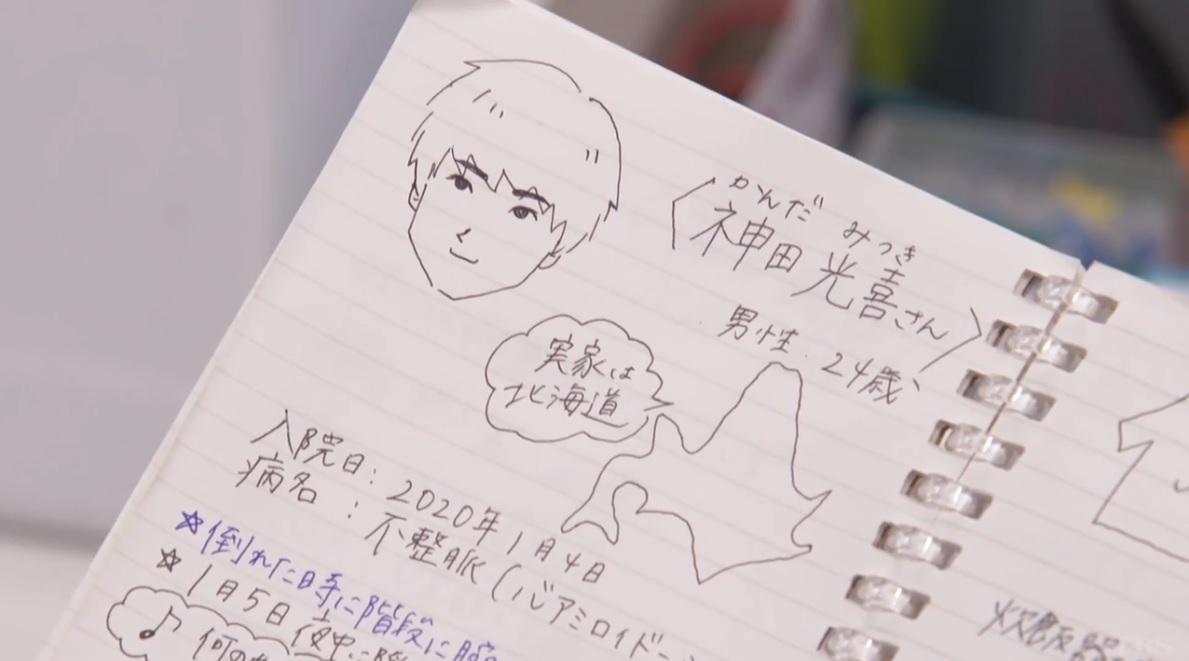 かんだ みつき
〈神田光喜さん〉
男性.24歳、
実家は
北海道
入院日:2020年1月4日
病名:不整脈(心アミロイドー
☆倒れた時に階段に
☆1月5日夜中に
♪何の
炊飯器